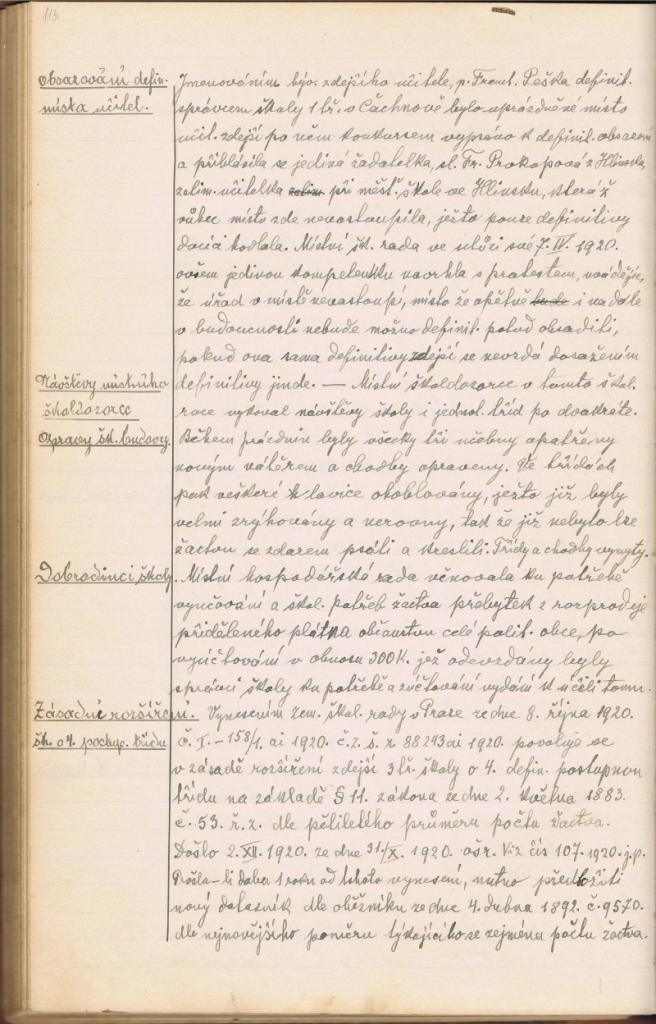 113.
Obsazování defin.
místa učitel.
Jmenováním býv. zdejšího učitele, p. Frant. Peška definit.
správcem školy 1 tř. v Čachnově bylo uprázdněné místo
učit. zdejší po něm konkursem vypsáno k definit. obsazení
a přihlásila se jediná žadatelka, sl. Fr. Prokopová z Hlinska,
zatím. učitelka zatím při měšť. škole ve Hlinsku, kteráž
vůbec místo zde nenastoupila, ježto pouze definitivy
docíl hodlala. Místní šk. rada ve schůzi své 7. IV. 1920.
ovšem jedinou kompetentku navrhla s protestem,
že úřad v místě nenastoupí, místo že opětně bude i nadále
v budoucnosti nebude možno definit. potud obsaditi,
pokud ona sama definitivy zdejší se nevzdá dosažením
definitivy jinde. — Místní školdozorce v tomto škol.
roce vykonal návštěvy školy i jednot. tříd po dvakráte.
Návštěvy místního
školdozorce
Opravy šk. budovy.
Během prázdnin byly všecky tři učebny opatřeny
novým nátěrem a chodby opraveny. Ve třídách
pak veškeré lavice ohoblovány, ježto již byly
velmi zrýhovány a nerovny, tak že již nebylo lze
žactvu se zdarem psáti a kresliti. Třídy a chodby vymyty.
Dobrodinci školy.
Místní hospodářská rada věnovala ku potřebě
vyučování a škol. potřeb žactva přebytek z rozprodeje
přiděleného plátna občanstvu celé polit. obce, po
vyúčtování v obnosu 300 K. jež odevzdány byly
správci školy ku potřebě a zúčtování vydání k účeli tomu.
Zásadní rozšíření
šk. o 4. postup. třídu
Vynesením zem. škol. rady v Praze ze dne 8. října 1920.
č. I. – 158/1. ai 1920. č. z. š. r. 88243 ai 1920. povoluje se
v zásadě rozšíření zdejší 3 tř. školy o 4. defin. postupnou
třídu na základě § 11. zákona ze dne 2. května 1883.
č. 53. ř. z. dle pětiletého průměru počtu žactva.
Došlo 2. XII. 1920. ze dne 31./X. 1920. ošr. čís 107. 1920. j.p.
Prošla-li doba 1 roku od tohoto vynesení, nutno předložiti
nový dotazník dle oběžníku ze dne 4. dubna 1892. č. 9570.
dle nejnovějšího poměru týkajícího se zejména počtu žactva.